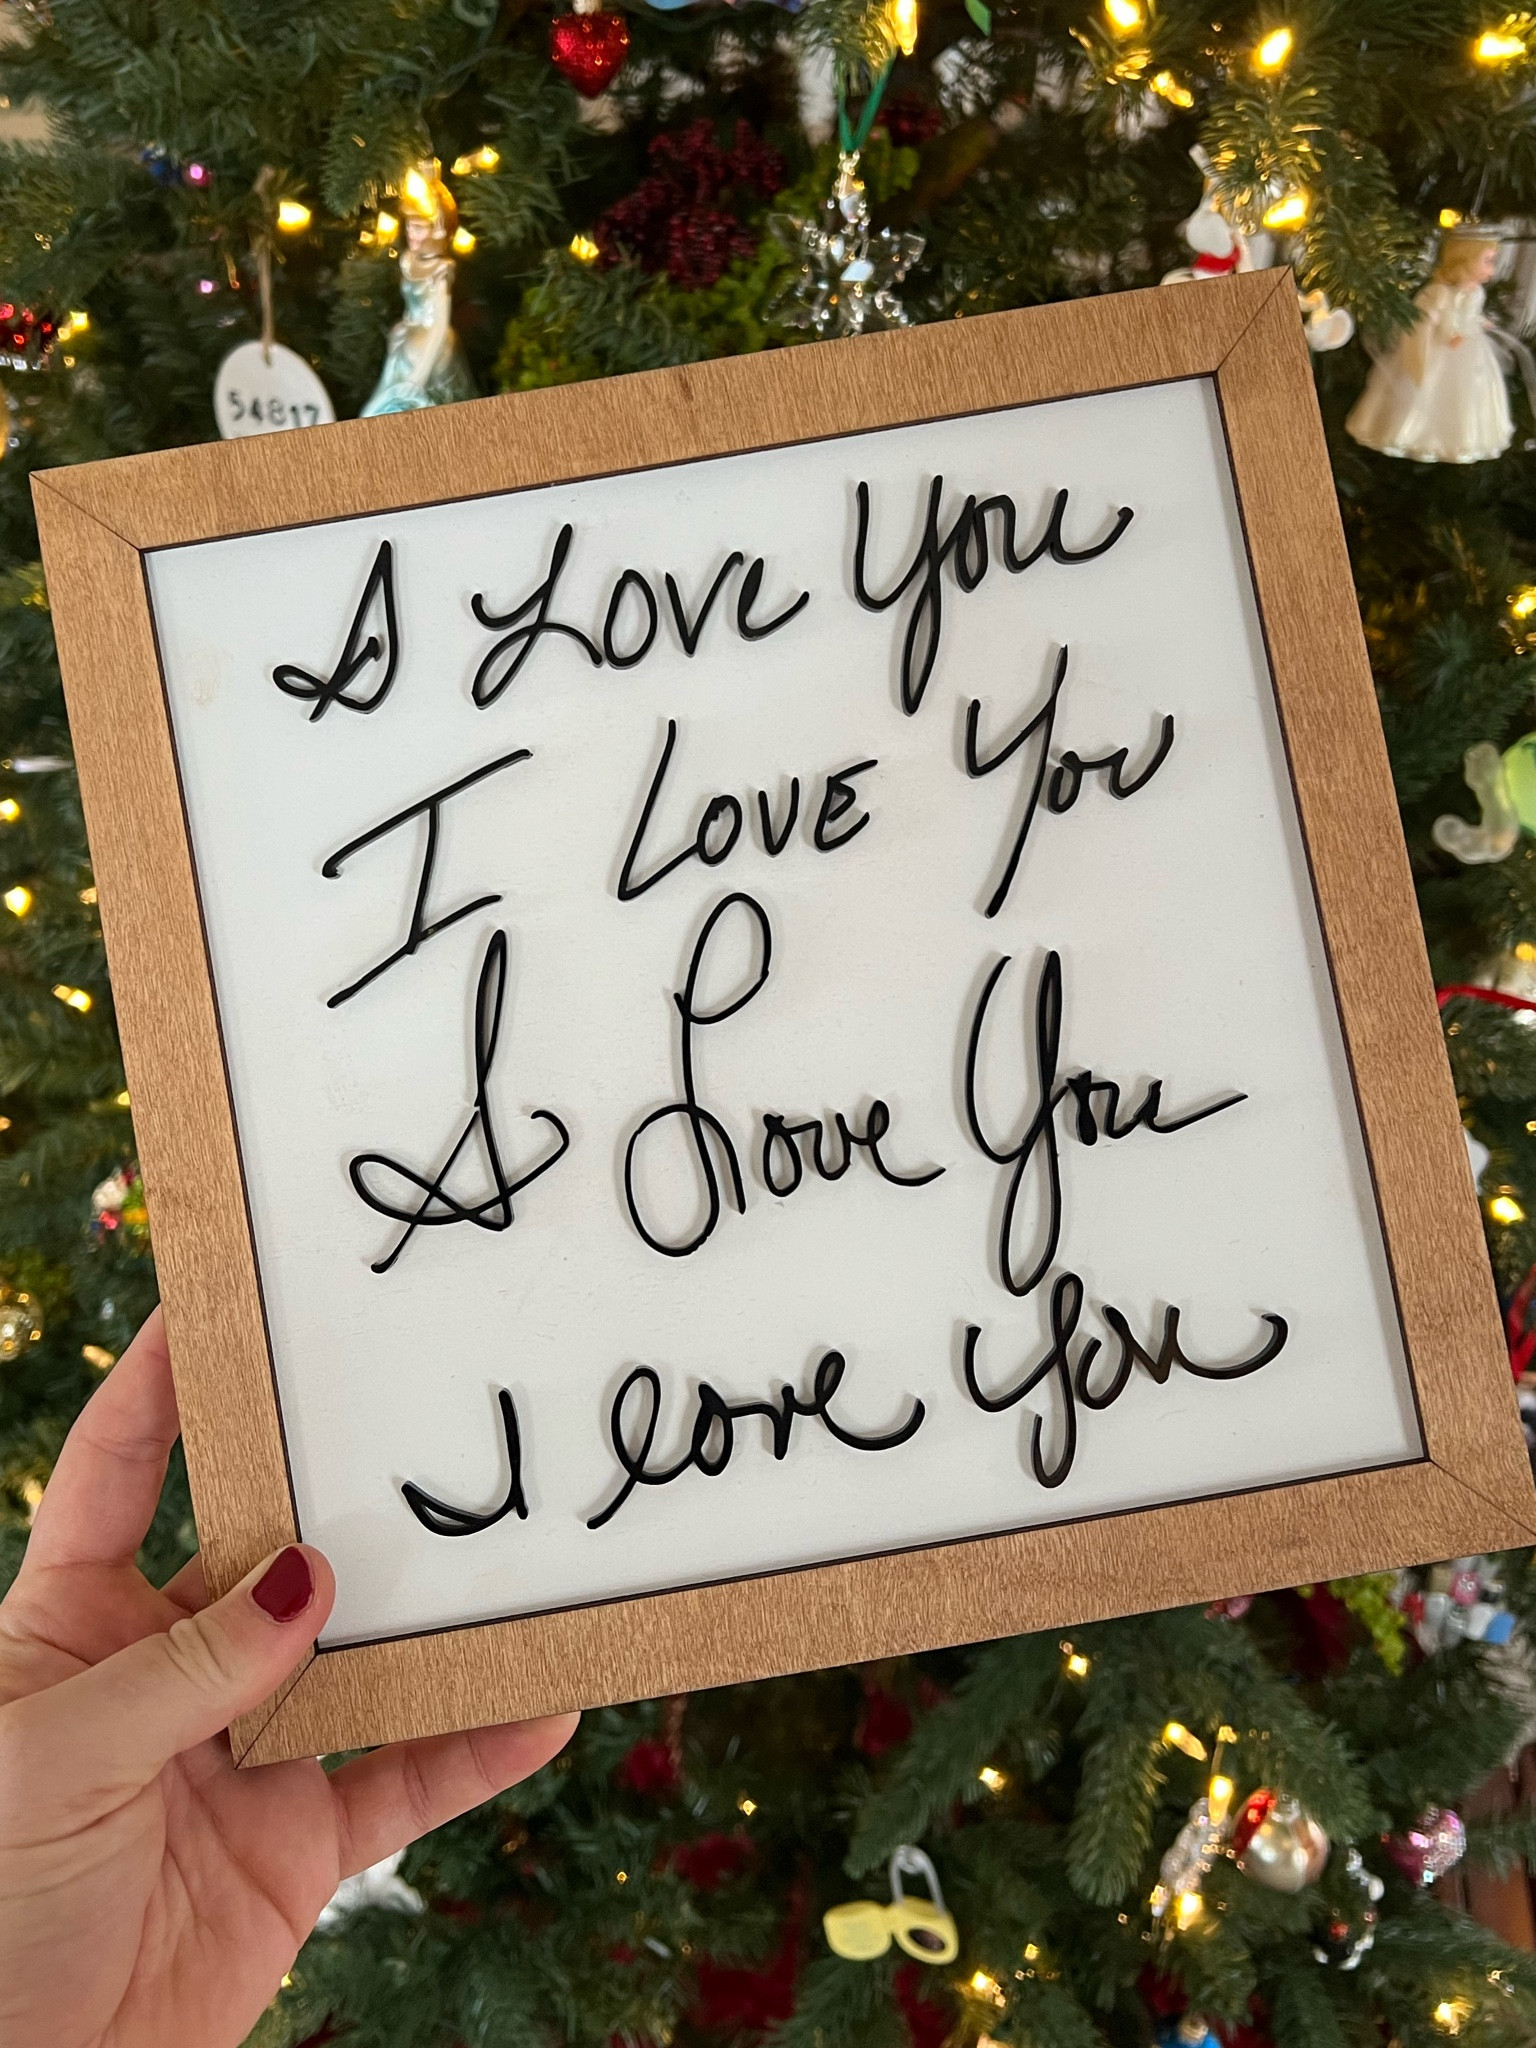 54817
I Love You
I LOVE You
I Love You
I love You